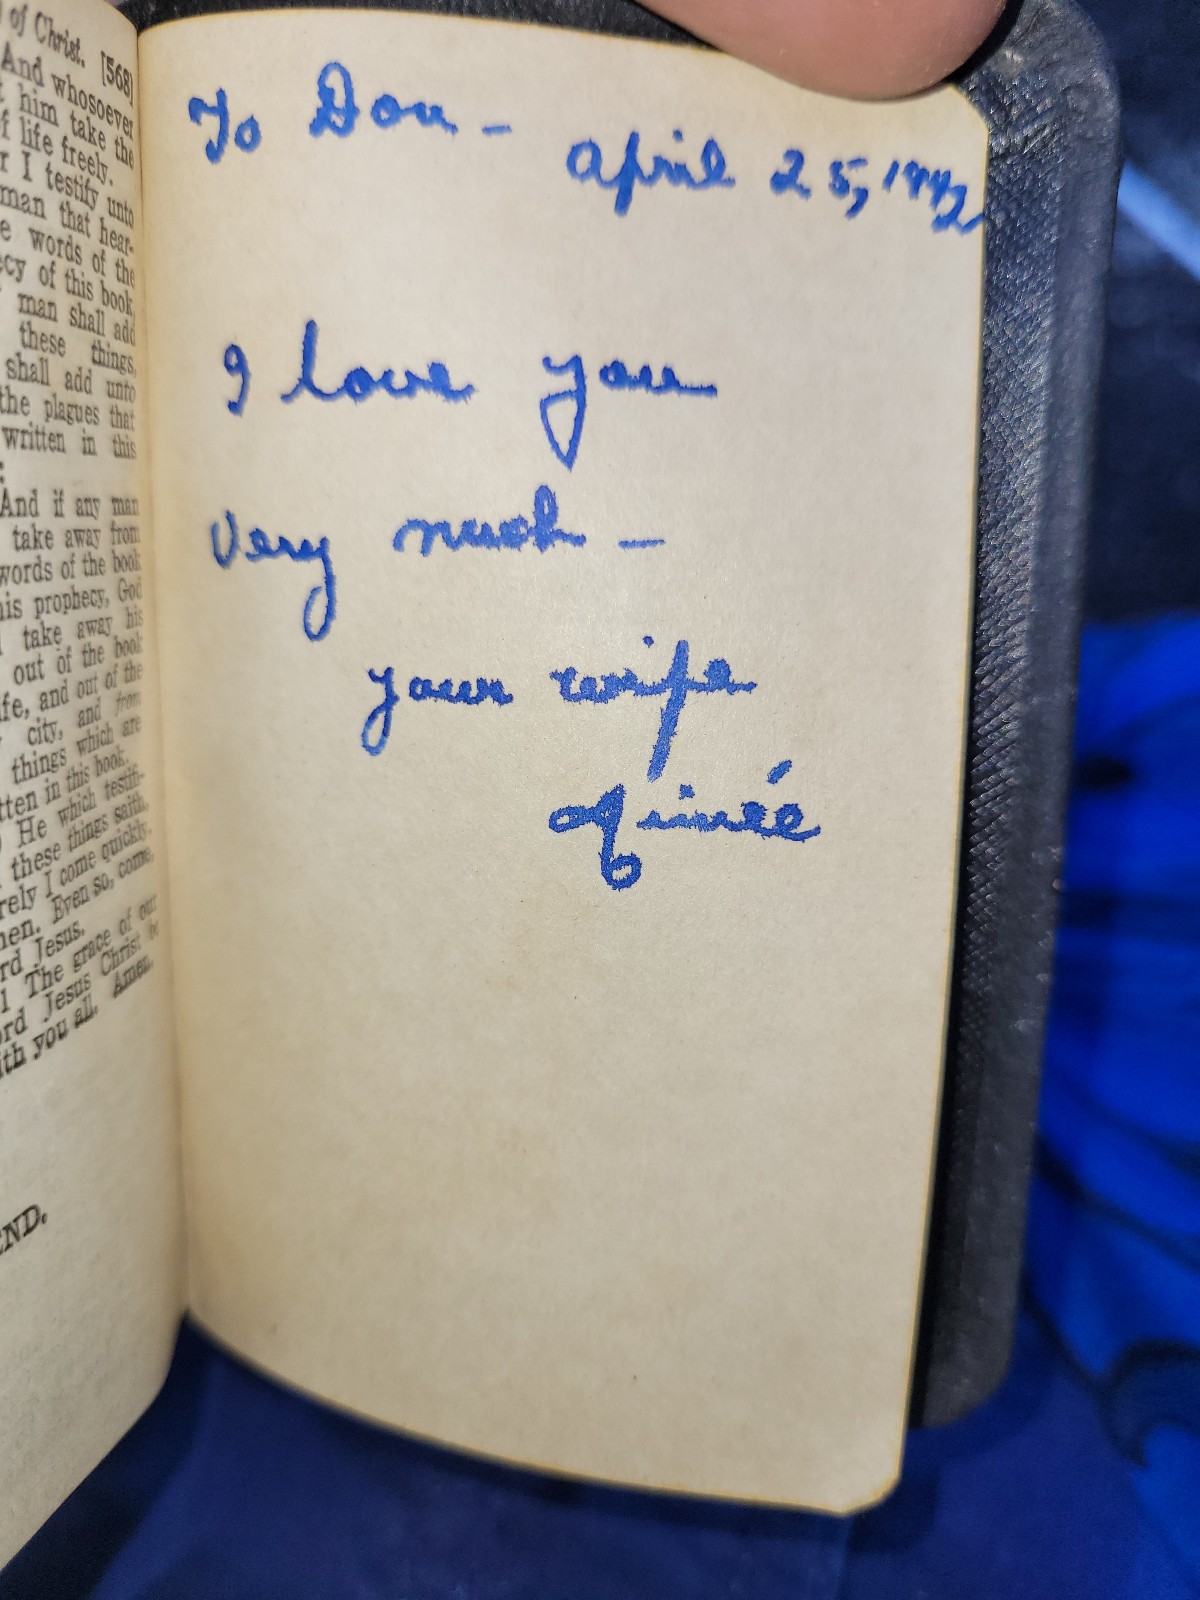 of Christ. [568]
And whosoever
him take the
of life freely.
r I testify unto
man that hear-
e words of the
ecy of this book,
man shall add
these things,
shall add unto
the plagues that
written in this
:
And if any man
take away from
words of the book
his prophecy, God
take away his
out of the book
ife, and out of the
city, and from
things which are
tten in this book.
He which testifi-
these things saith,
rely I come quickly.
men. Even so, come,
rd Jesus.
1 The grace of our
ord Jesus Christ be
ith you all. Amen.
END.
To Don - April 25,
I love you
very much -
your wife
Aimée